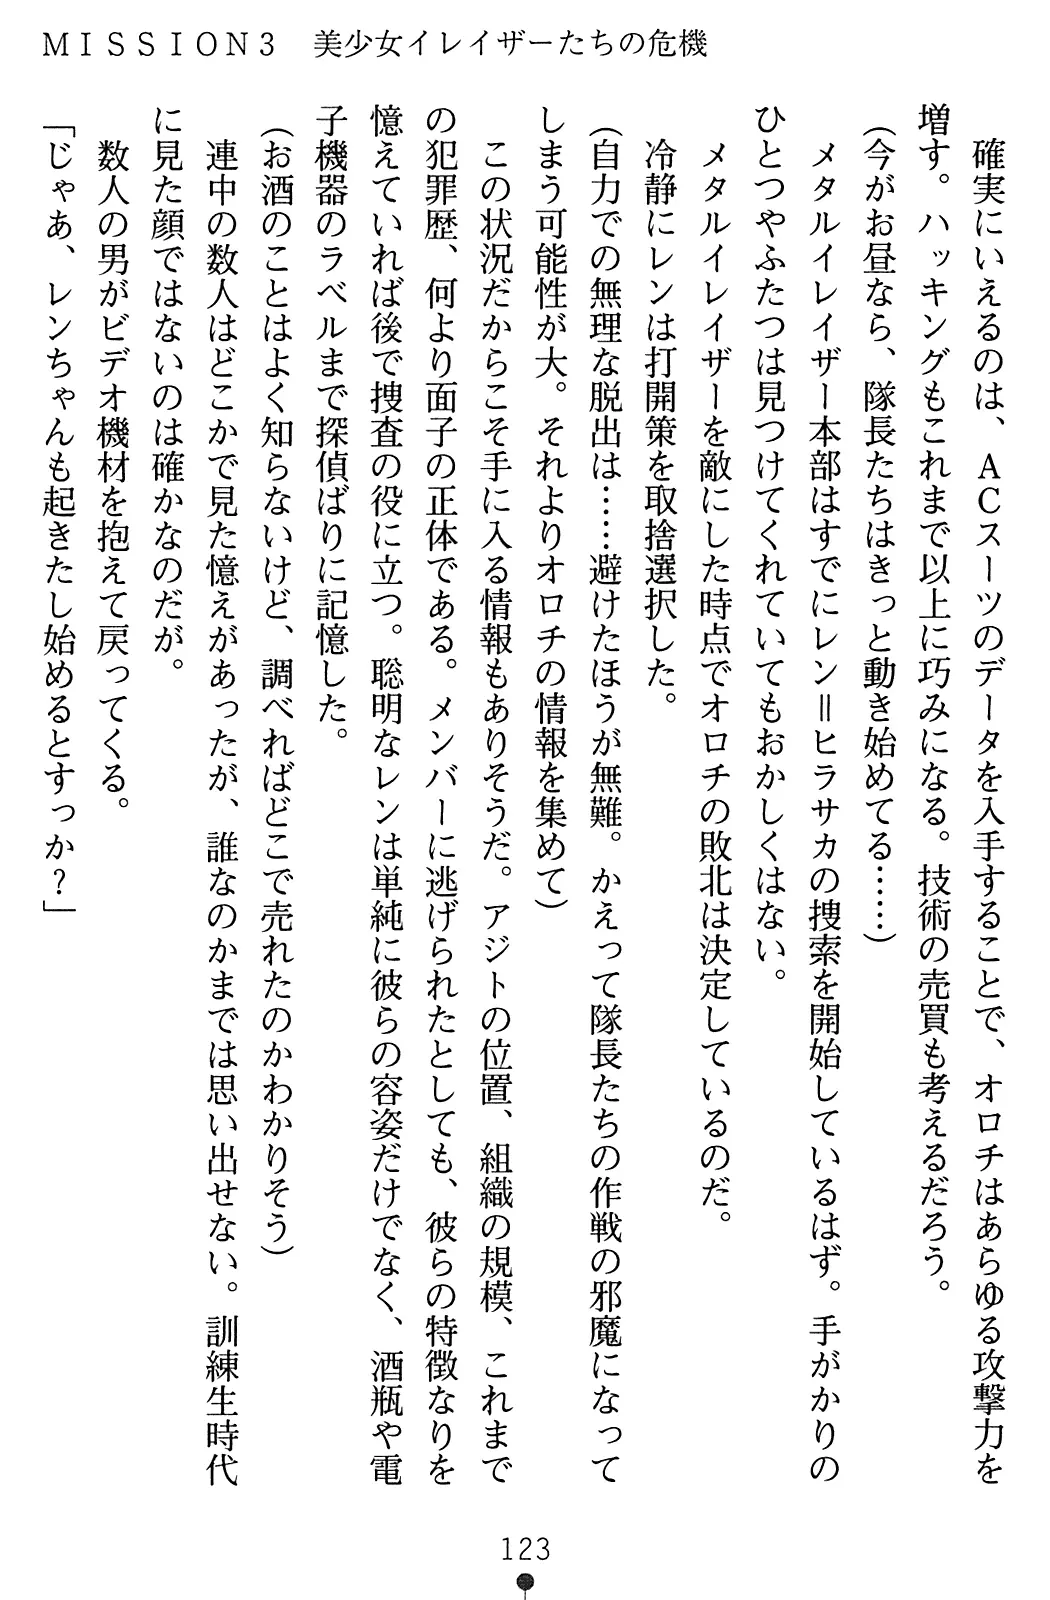 ＭＩＳＳＩＯＮ３　美少女イレイザーたちの危機
　確実にいえるのは、ＡＣスーツのデータを入手することで、オロチはあらゆる攻撃力を
増す。ハッキングもこれまで以上に巧みになる。技術の売買も考えるだろう。
（今がお昼なら、隊長たちはきっと動き始めてる……）
　メタルイレイザー本部はすでにレン＝ヒラサカの捜索を開始しているはず。手がかりの
ひとつやふたつは見つけてくれていてもおかしくはない。
　メタルイレイザーを敵にした時点でオロチの敗北は決定しているのだ。
　冷静にレンは打開策を取捨選択した。
（自力での無理な脱出は……避けたほうが無難。かえって隊長たちの作戦の邪魔になって
しまう可能性が大。それよりオロチの情報を集めて）
　この状況だからこそ手に入る情報もありそうだ。アジトの位置、組織の規模、これまで
の犯罪歴、何より面子の正体である。メンバーに逃げられたとしても、彼らの特徴なりを
憶えていれば後で捜査の役に立つ。聡明なレンは単純に彼らの容姿だけでなく、酒瓶や電
子機器のラベルまで探偵ばりに記憶した。
（お酒のことはよく知らないけど、調べればどこで売れたのかわかりそう）
　連中の数人はどこかで見た憶えがあったが、誰なのかまでは思い出せない。訓練生時代
に見た顔ではないのは確かなのだが。
　数人の男がビデオ機材を抱えて戻ってくる。
「じゃあ、レンちゃんも起きたし始めるとすっか？」
123